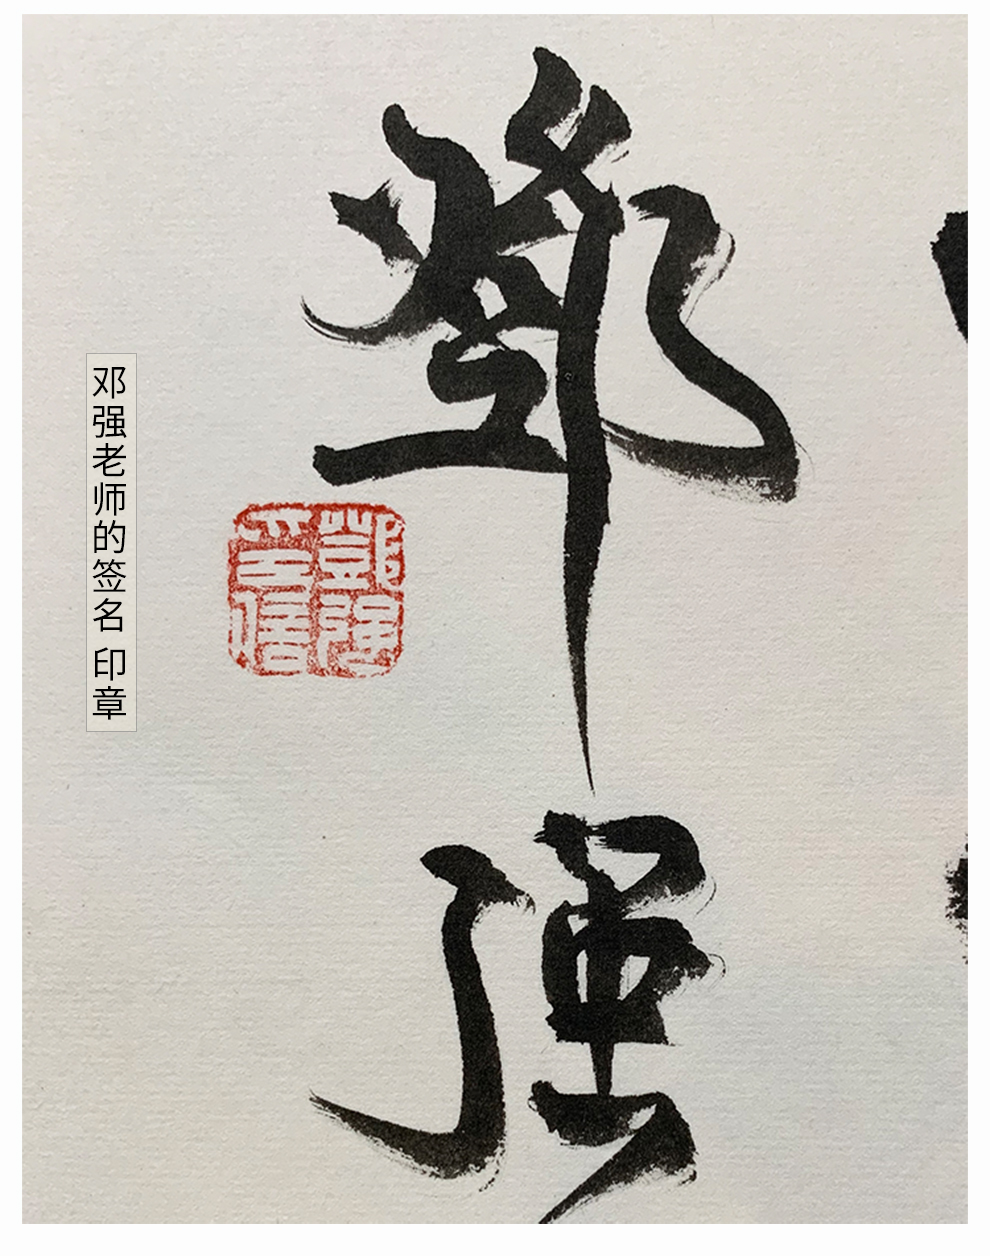 鄧强
鄧强
印信
邓强老师的签名 印章